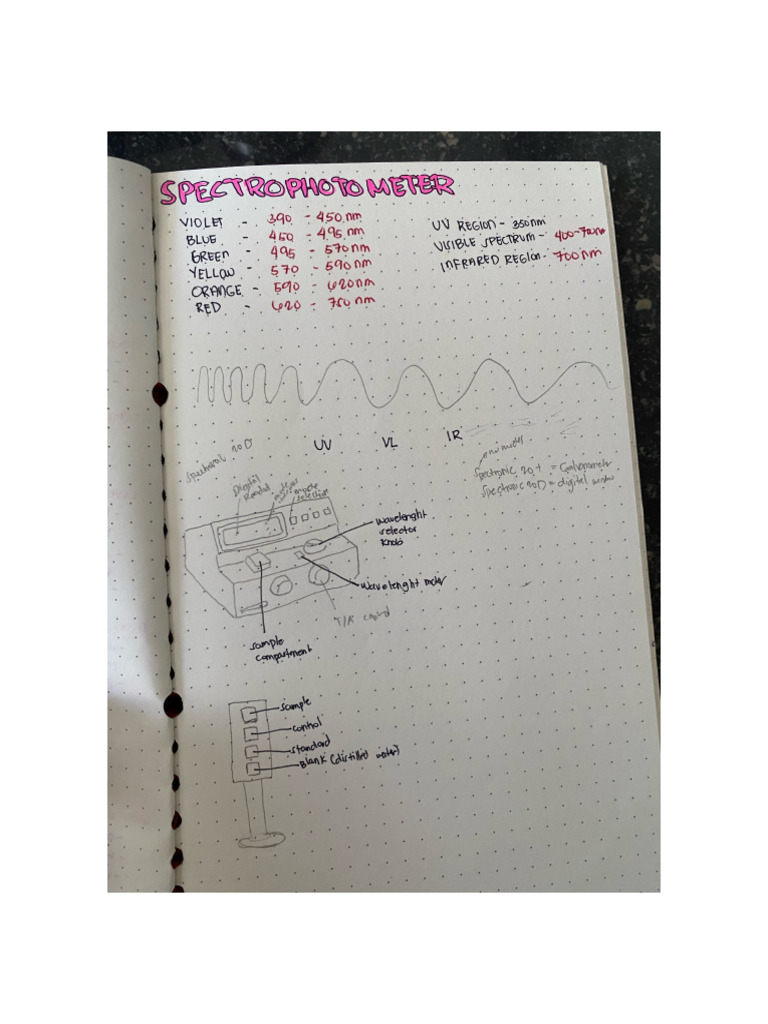 SPECTROPHOTOMETER
VIOLET - 390 - 450nm
BLUE - 450 - 495nm
GREEN - 495 - 570nm
YELLOW - 570 - 590nm
ORANGE - 590 - 620nm
RED - 620 - 750nm
UV REGION - 350nm
VISIBLE SPECTRUM - 400-700nm
INFRARED REGION - 700nm
UV VL IR
20D
Spectronic 20+ = Galvanometer
Spectronic 20D = digital window
Digital
Readout
mode
selection
wavelenght
selector
knob
wavelenght meter
T/A control
sample
compartment
sample
control
standard
Blank (distilled water)